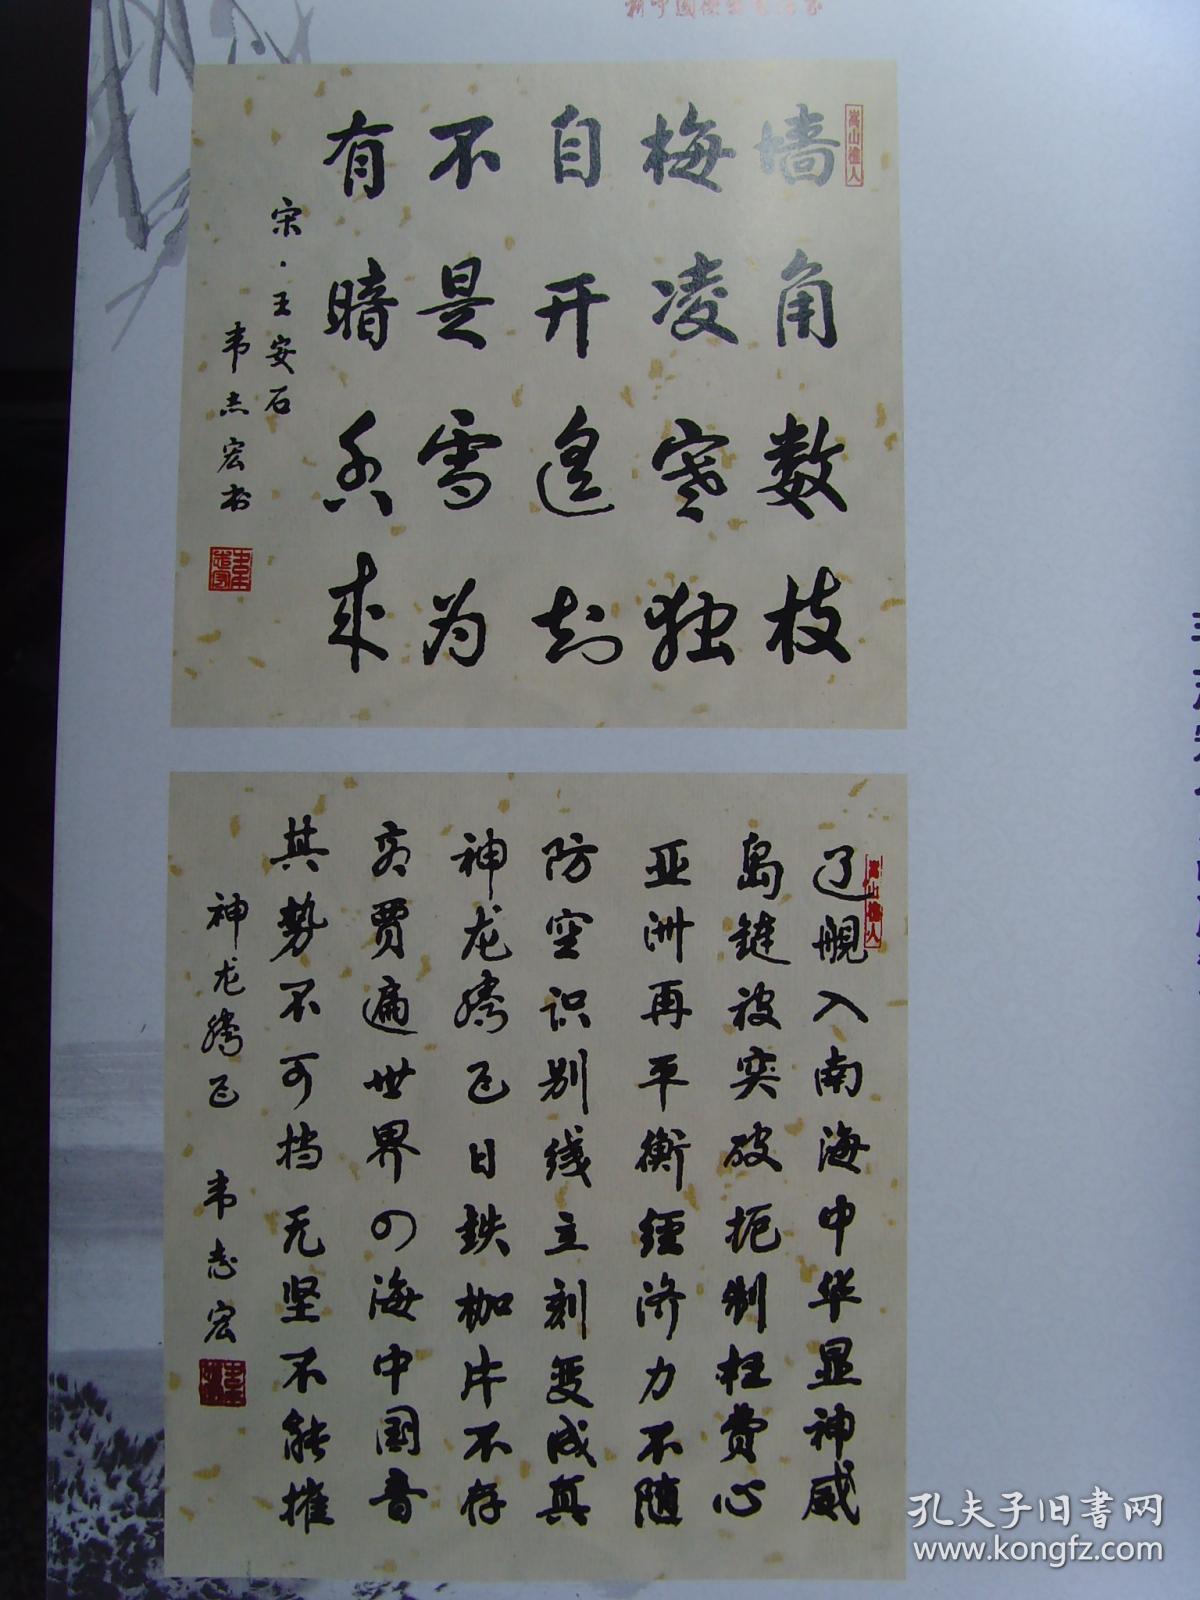 嵩山樵人
墙角数枝
梅凌寒独
自开遥知
不是雪为
有暗香来
宋·王安石
韦志宏书
嵩山樵人
辽舰入南海中华显神威
岛链被突破扼制枉费心
亚洲再平衡经济力不随
防空识别线立刻变成真
神龙腾飞日铁枷片不存
商贾遍世界四海中国音
其势不可挡无坚不能摧
神龙腾飞 韦志宏
孔夫子旧书网
www.kongfz.com